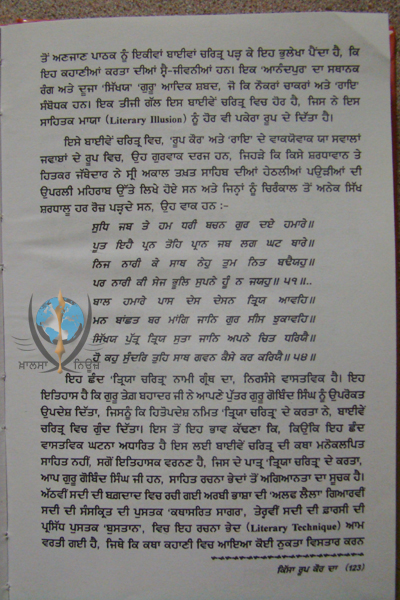 ਤੋਂ ਅਣਜਾਣ ਪਾਠਕ ਨੂੰ ਇਕੀਵਾਂ ਬਾਈਵਾਂ ਚਰਿਤ੍ਰ ਪੜ ਕੇ ਇਹ ਭੁਲੇਖਾ ਪੈਂਦਾ ਹੈ, ਕਿ
ਇਹ ਕਹਾਣੀਆਂ ਕਰਤਾ ਦੀਆਂ ਸ੍ਵੈ-ਜੀਵਨੀਆਂ ਹਨ। ਇਕ 'ਆਨੰਦਪੁਰ' ਦਾ ਸਥਾਨਕ
ਰੰਗ ਅਤੇ ਦੂਜਾ 'ਸਿੱਖਯ' 'ਗੁਰੂ' ਆਦਿਕ ਸ਼ਬਦ, ਜੋ ਕਿ ਨੌਕਰਾਂ ਚਾਕਰਾਂ ਅਤੇ 'ਰਾਇ'
ਸੰਬੋਧਕ ਹਨ। ਇਕ ਤੀਜੀ ਗੱਲ ਇਸ ਬਾਈਵੇਂ ਚਰਿਤ੍ਰ ਵਿਚ ਹੋਰ ਹੈ, ਜਿਸ ਨੇ ਇਸ
ਸਾਹਿਤਕ ਮਾਯਾ (Literary Illusion) ਨੂੰ ਹੋਰ ਵੀ ਪਕੇਰਾ ਰੂਪ ਦੇ ਦਿੱਤਾ ਹੈ।
ਇਸੇ ਬਾਈਵੇਂ ਚਰਿਤ੍ਰ ਵਿਚ, 'ਰੂਪ ਕੌਰ' ਅਤੇ 'ਰਾਇ' ਦੇ ਵਾਕਯੋਵਾਕ ਯਾ ਸਵਾਲਾਂ
ਜਵਾਬਾਂ ਦੇ ਰੂਪ ਵਿਚ, ਉਹ ਗੁਰਵਾਕ ਦਰਜ ਹਨ, ਜਿਹੜੇ ਕਿ ਕਿਸੇ ਸ਼ਰਧਾਵਾਨ ਤੇ
ਹਿਤਕਰ ਜੱਥੇਦਾਰ ਨੇ ਸ੍ਰੀ ਅਕਾਲ ਤਖ਼ਤ ਸਾਹਿਬ ਦੀਆਂ ਹੇਠਲੀਆਂ ਪਉੜੀਆਂ ਦੀ
ਉਪਰਲੀ ਮਹਿਰਾਬ ਉੱਤੇ ਲਿਖੇ ਹੋਏ ਸਨ ਅਤੇ ਜਿਨ੍ਹਾਂ ਨੂੰ ਚਿਰੰਕਾਲ ਤੋਂ ਅਨੇਕ ਸਿੱਖ
ਸ਼ਰਧਾਲੂ ਹਰ ਰੋਜ਼ ਪੜ੍ਹਦੇ ਸਨ, ਉਹ ਵਾਕ ਹਨ :-
ਸੁਧਿ ਜਬ ਤੇ ਹਮ ਧਰੀ ਬਚਨ ਗੁਰ ਦਏ ਹਮਾਰੇ॥
ਪੂਤ ਇਹੈ ਪ੍ਰਨ ਤੋਹਿ ਪ੍ਰਾਨ ਜਬ ਲਗ ਘਟ ਥਾਰੇ॥
ਨਿਜ ਨਾਰੀ ਕੇ ਸਾਥ ਨੇਹੁ ਤੁਮ ਨਿਤ ਬਢੈਯਹੁ॥
ਪਰ ਨਾਰੀ ਕੀ ਸੇਜ ਭੂਲਿ ਸੁਪਨੇ ਹੂੰ ਨ ਜਯਹੁ॥ ੫੧॥..
ਬਾਲ ਹਮਾਰੇ ਪਾਸ ਦੇਸ ਦੇਸਨ ਤ੍ਰਿਯ ਆਵਹਿ॥
ਮਨ ਬਾਂਛਤ ਬਰ ਮਾਂਗਿ ਜਾਨਿ ਗੁਰ ਸੀਸ ਝੁਕਾਵਹਿ॥
ਸਿੱਖਯ ਪੁੱਤ੍ਰ ਤ੍ਰਿਯ ਸੁਤਾ ਜਾਨਿ ਅਪਨੇ ਚਿਤ ਧਰਿਯੈ॥
ਹੋ ਕਹੁ ਸੁੰਦਰਿ ਤੁਹਿ ਸਾਥ ਗਵਨ ਕੈਸੇ ਕਰ ਕਰਿਯੈ॥ ੫੪॥
ਇਹ ਛੰਦ 'ਤ੍ਰਿਯਾ ਚਰਿਤ੍ਰ' ਨਾਮੀ ਗ੍ਰੰਥ ਦਾ, ਨਿਰਸੰਸੇ ਵਾਸਤਵਿਕ ਹੈ। ਇਹ
ਇਤਿਹਾਸ ਹੈ ਕਿ ਗੁਰੂ ਤੇਗ਼ ਬਹਾਦਰ ਜੀ ਨੇ ਆਪਣੇ ਪੁੱਤਰ ਗੁਰੂ ਗੋਬਿੰਦ ਸਿੰਘ ਨੂੰ ਉਪਰੋਕਤ
ਉਪਦੇਸ਼ ਦਿੱਤਾ, ਜਿਸਨੂੰ ਕਿ ਹਿਤੋਪਦੇਸ਼ ਨਮਿਤ 'ਤ੍ਰਿਯਾ ਚਰਿਤ੍ਰ' ਦੇ ਕਰਤਾ ਨੇ, ਬਾਈਵੇਂ
ਚਰਿਤ੍ਰ ਵਿਚ ਗੁੰਦ ਦਿੱਤਾ। ਇਸ ਤੋਂ ਇਹ ਭਾਵ ਕੱਢਣਾ ਕਿ, ਕਿਉਂਕਿ ਇਹ ਛੰਦ
ਵਾਸਤਵਿਕ ਘਟਨਾ ਅਧਾਰਿਤ ਹੈ ਇਸ ਲਈ ਬਾਈਵੇਂ ਚਰਿਤ੍ਰ ਦੀ ਕਥਾ ਮਨੋਕਲਪਿਤ
ਸਾਹਿਤ ਨਹੀਂ, ਸਗੋਂ ਇਤਿਹਾਸਕ ਵਰਣਣ ਹੈ, ਜਿਸ ਦੇ ਪਾਤ੍ਰ 'ਤ੍ਰਿਯਾ ਚਰਿਤ੍ਰ' ਦੇ ਕਰਤਾ,
ਆਪ ਗੁਰੂ ਗੋਬਿੰਦ ਸਿੰਘ ਜੀ ਹਨ, ਸਾਹਿਤ ਰਚਨਾ ਭੇਦਾਂ ਤੋਂ ਅਗਿਆਨਤਾ ਦਾ ਸੂਚਕ ਹੈ।
ਅੱਠਵੀਂ ਸਦੀ ਦੀ ਬਗ਼ਦਾਦ ਵਿਚ ਰਚੀ ਗਈ ਅਰਬੀ ਭਾਸ਼ਾ ਦੀ 'ਅਲਫ ਲੈਲਾ' ਗਿਆਰਵੀਂ
ਸਦੀ ਦੀ ਸੰਸਕ੍ਰਿਤ ਦੀ ਪੁਸਤਕ 'ਕਥਾਸਰਿਤ ਸਾਗਰ', ਤੇਰ੍ਹਵੀਂ ਸਦੀ ਦੀ ਫ਼ਾਰਸੀ ਦੀ
ਪ੍ਰਸਿੱਧ ਪੁਸਤਕ 'ਬੁਸਤਾਨ', ਵਿਚ ਇਹ ਰਚਨਾ ਭੇਦ (Literary Technique) ਆਮ
ਵਰਤੀ ਗਈ ਹੈ, ਜਿਥੇ ਕਿ ਕਥਾ ਕਹਾਣੀ ਵਿਚ ਆਇਆ ਕੋਈ ਨੁਕਤਾ ਵਿਸਤਾਰ ਕਰਨ
ਕਿੱਸਾ ਰੂਪ ਕੌਰ ਦਾ (123)
ਖ਼ਾਲਸਾ ਨਿਊਜ਼